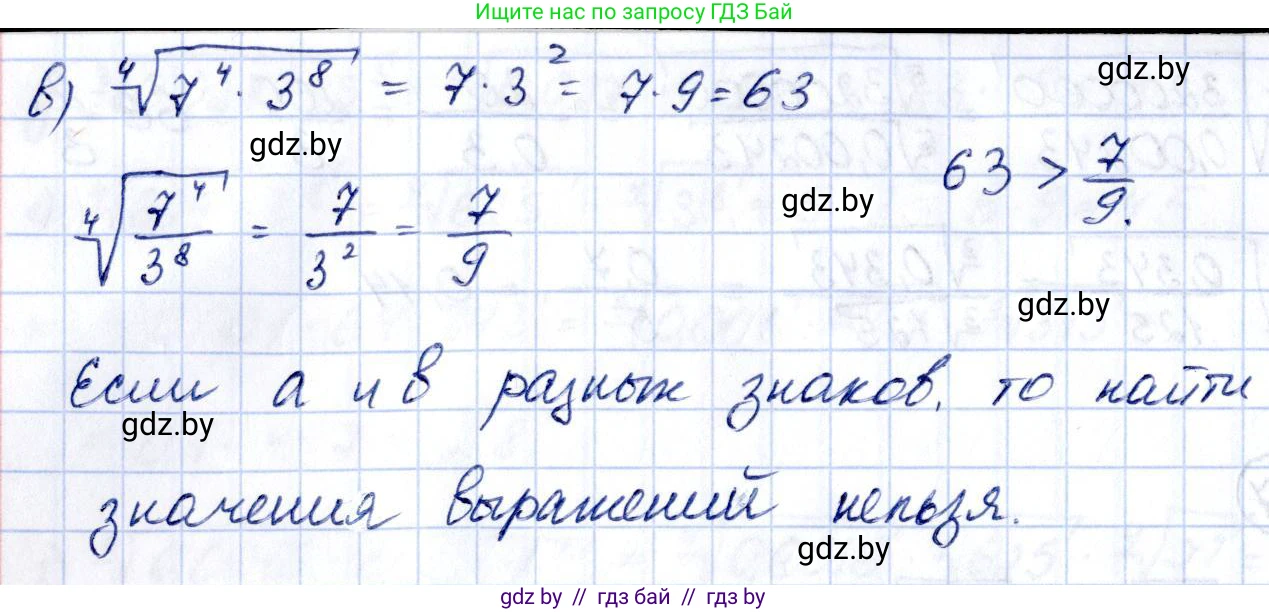 Ищите нас по запросу ГДЗ Бай
в) ⁴√(7⁴ · 3⁸) = 7 · 3² = 7 · 9 = 63
gdz.by
gdz.by
⁴√(7⁴/3⁸) = 7/3² = 7/9
gdz.by
63 > 7/9.
gdz.by
Если а и в разных знаков, то найти
gdz.by
значения выражений нельзя.
gdz.by
gdz.by // гдз бай // гдз by